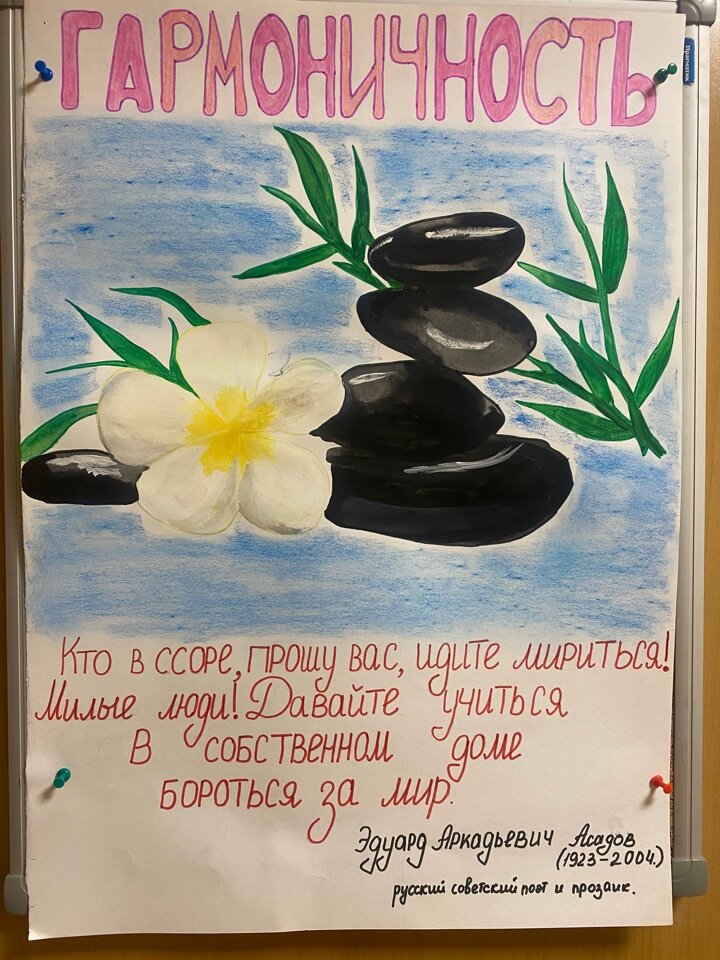 ГАРМОНИЧНОСТЬ
Кто в ссоре, прошу вас, идите мириться!
Милые люди! Давайте учиться
В собственном доме
бороться за мир.
Эдуард Аркадьевич Асадов
(1923-2004.)
русский советский поэт и прозаик.